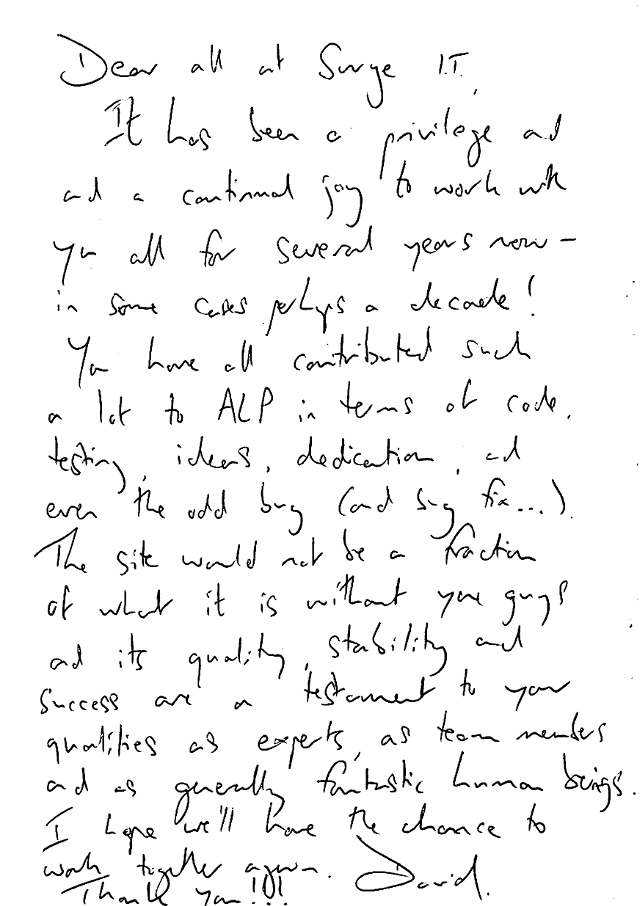 Dear all at Surge I.T,
It has been a privilege and
and a continual joy to work with
you all for several years now –
in some cases perhaps a decade!
You have all contributed such
a lot to ALP in terms of code,
testing, ideas, dedication, and
even the odd bug (and bug fix...).
The site would not be a fraction
of what it is without you guys
and its quality, stability and
success are a testament to your
qualities as experts, as team members
and as generally fantastic human beings.
I hope we'll have the chance to
work together again. David.
Thank you!!!